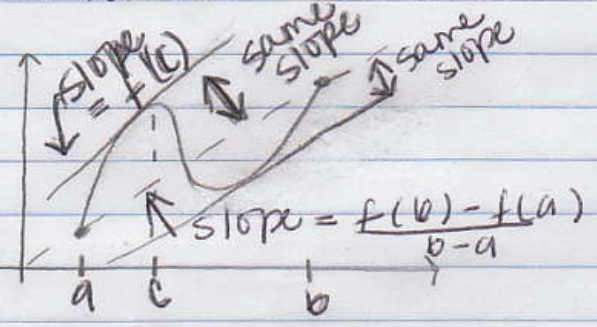 slope
= f'(c)
same
slope
same
slope
slope = f(b) - f(a)
b-a
a
c
b